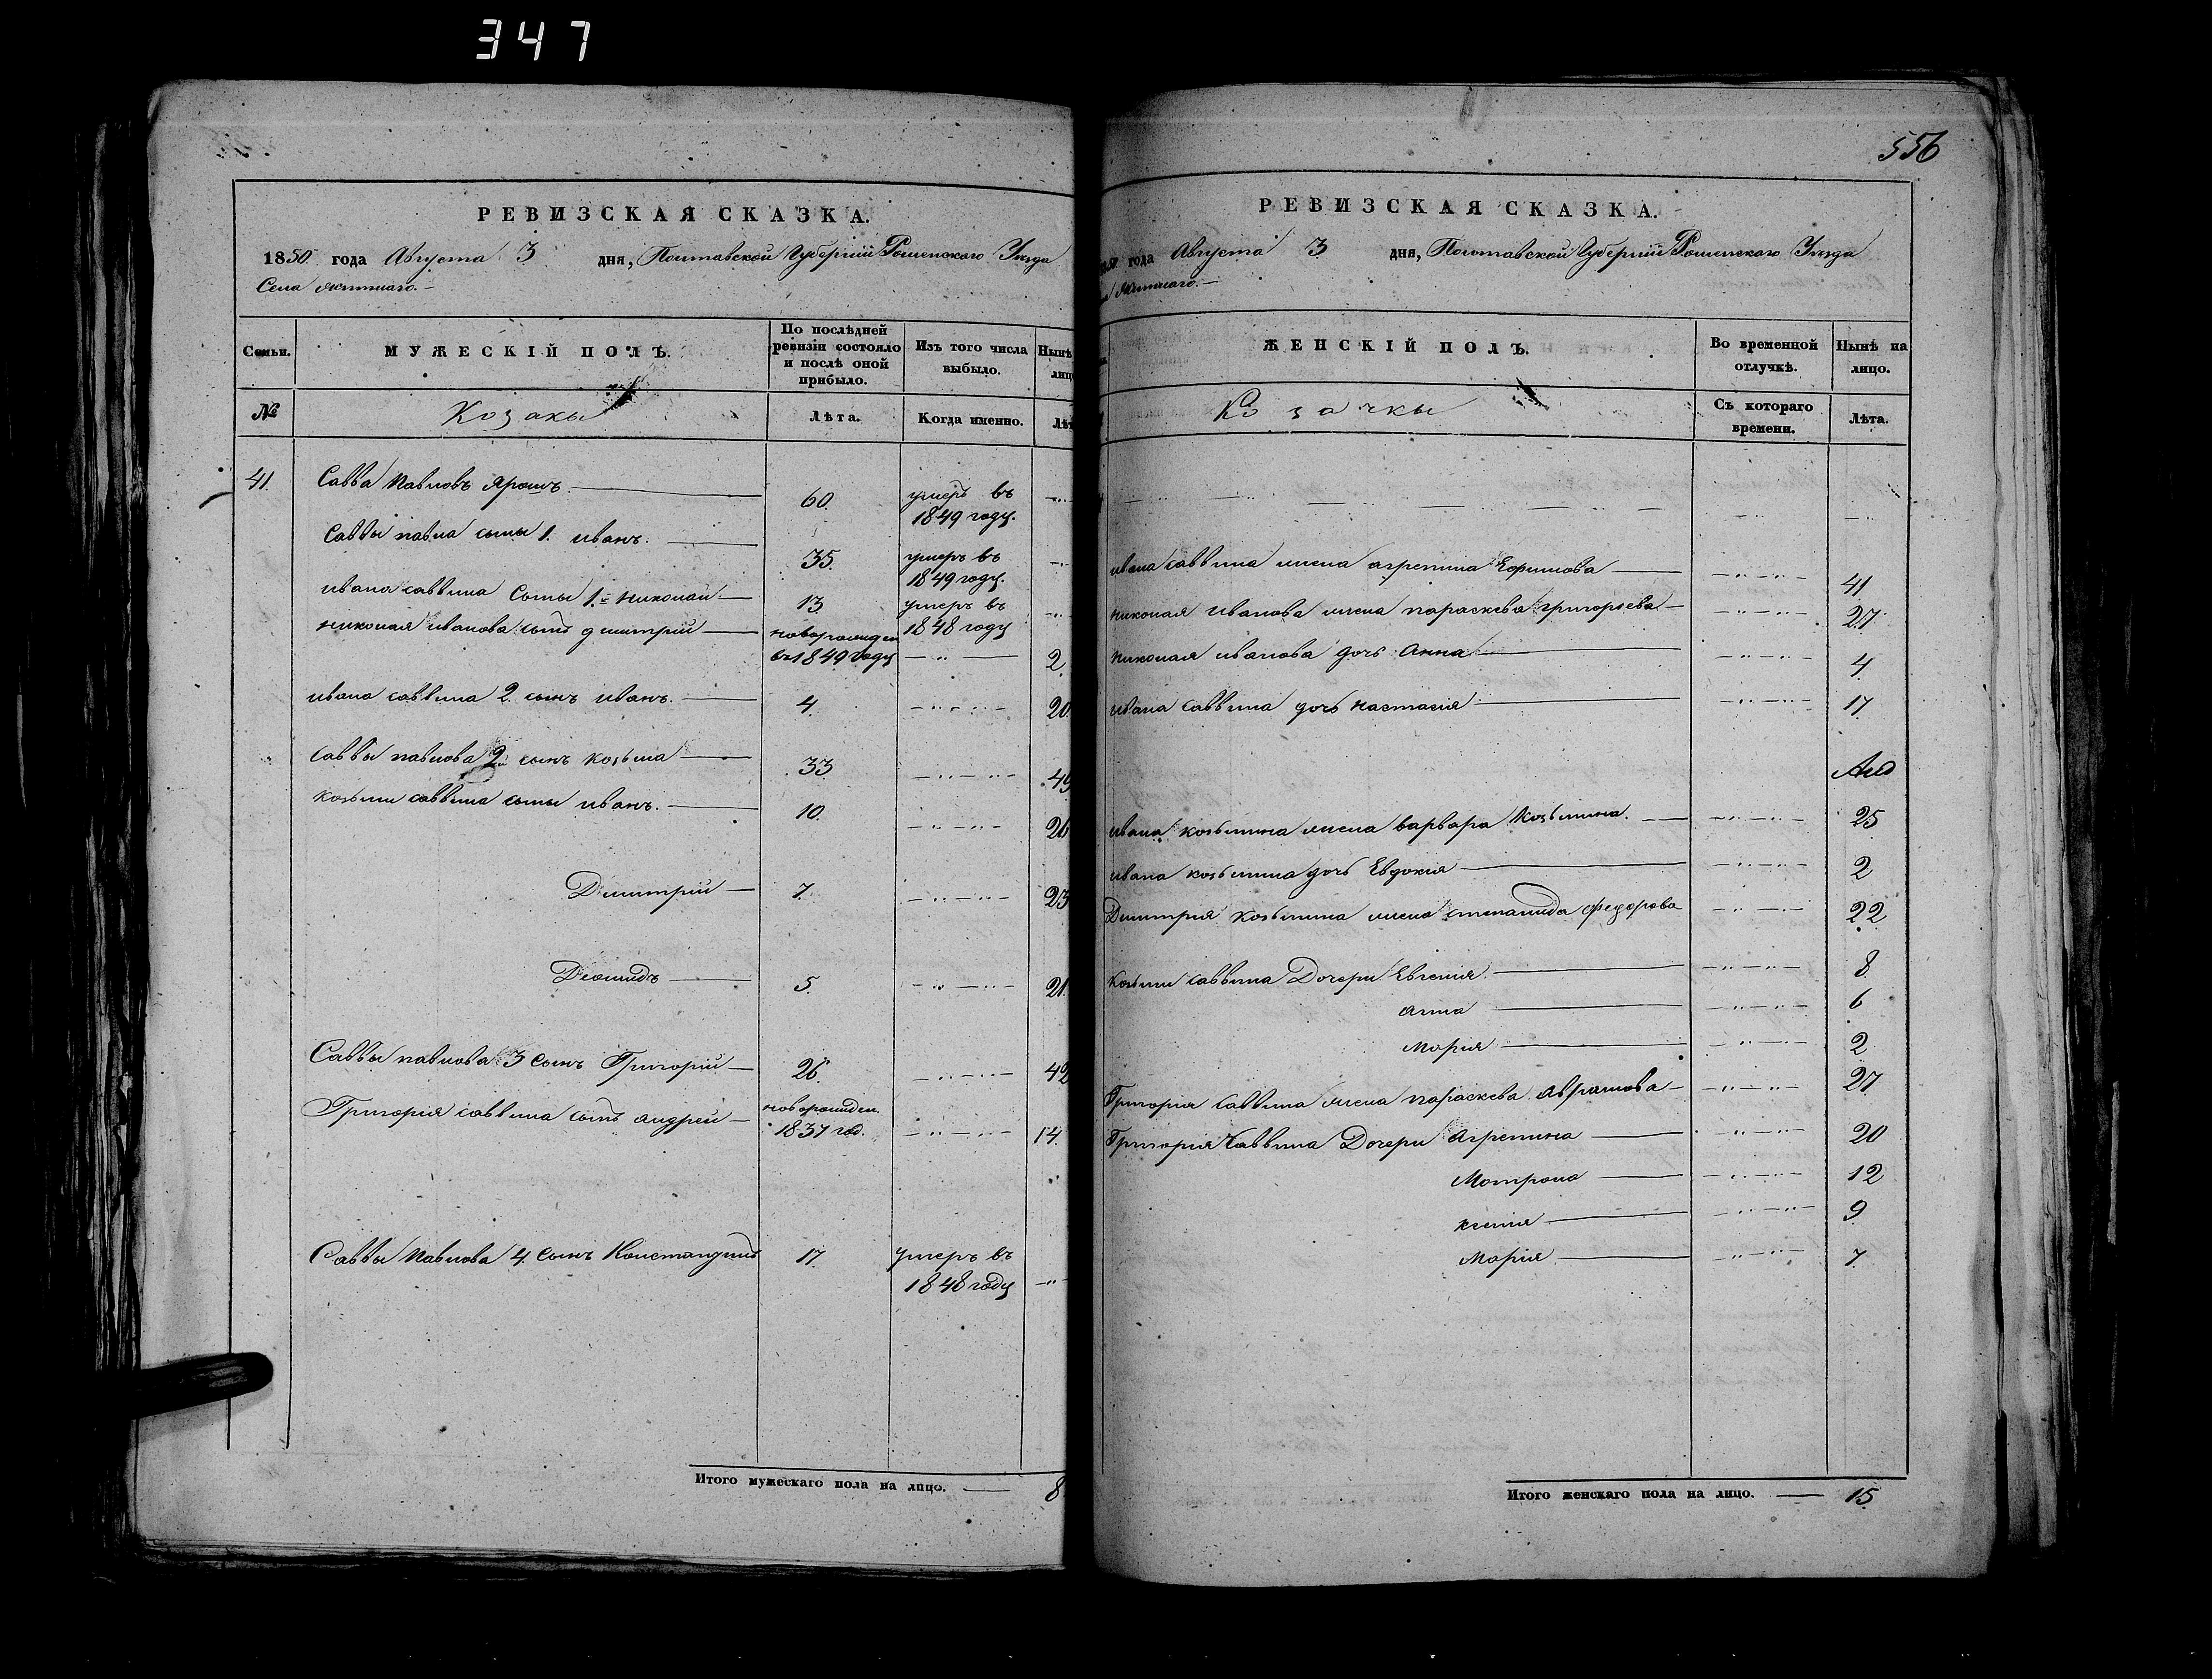 347
РЕВИЗСКАЯ СКАЗКА.
1850 года Августа 3 дня, Полтавской Губерніи Роменскаго Уезда
Села
Семьи. МУЖЕСКІЙ ПОЛЪ. По послѣдней ревизіи состояло и послѣ оной прибыло. Изъ того числа выбыло. Нынѣ лицо
№ Козаки Лѣта. Когда именно. Лѣт
41. Савва Павловъ Ярошъ. 60. умеръ въ
1849 году.
Саввы павла сыны 1. иванъ. 35. умеръ въ
1849 году.
ивана саввина Сыны 1. николай 13. умеръ въ
1848 году
николая иванова сынъ дмитрій новорожден
въ 1849 году 2
ивана саввина 2. сынъ иванъ. 4. 20
саввы павлова 2. сынъ козьма 33 49
козьмы саввина сыны иванъ. 10. 26
Дмитрій 7. 23
Леонидъ 5. 21.
Саввы павлова 3 сынъ Григорій 26. 42
Григорія саввина сынъ андрей новорожден.
1837 год. 14.
Саввы Павлова 4. сынъ Константинъ 17. умеръ въ
1848 году
Итого мужескаго пола на лицо. 8
556
РЕВИЗСКАЯ СКАЗКА.
года Августа 3 дня, Полтавской Губерніи Роменскаго Уезда
ЖЕНСКІЙ ПОЛЪ. Во временной отлучкѣ. Нынѣ на лицо.
Козачкы Съ котораго времени. Лѣта.
ивана саввина жена агрепина Ефимова 41
николая иванова жена параскева григорьева 27
николая иванова дочь Анна 4
ивана саввина дочь настасія 17
ивана козьмина жена варвара Козьмина. 25
ивана козьмина дочь Евдокія 2
Дмитрія козьмина жена степанида федорова 22
козьмы саввина Дочери Евгенія 8
анна 6
Марія 2
Григорія саввина жена параскева Аврамова 27
Григорія Саввина Дочери Агрепина 20
Мотрона 12
ксенія 9
Марія 7
Итого женскаго пола на лицо. 15.